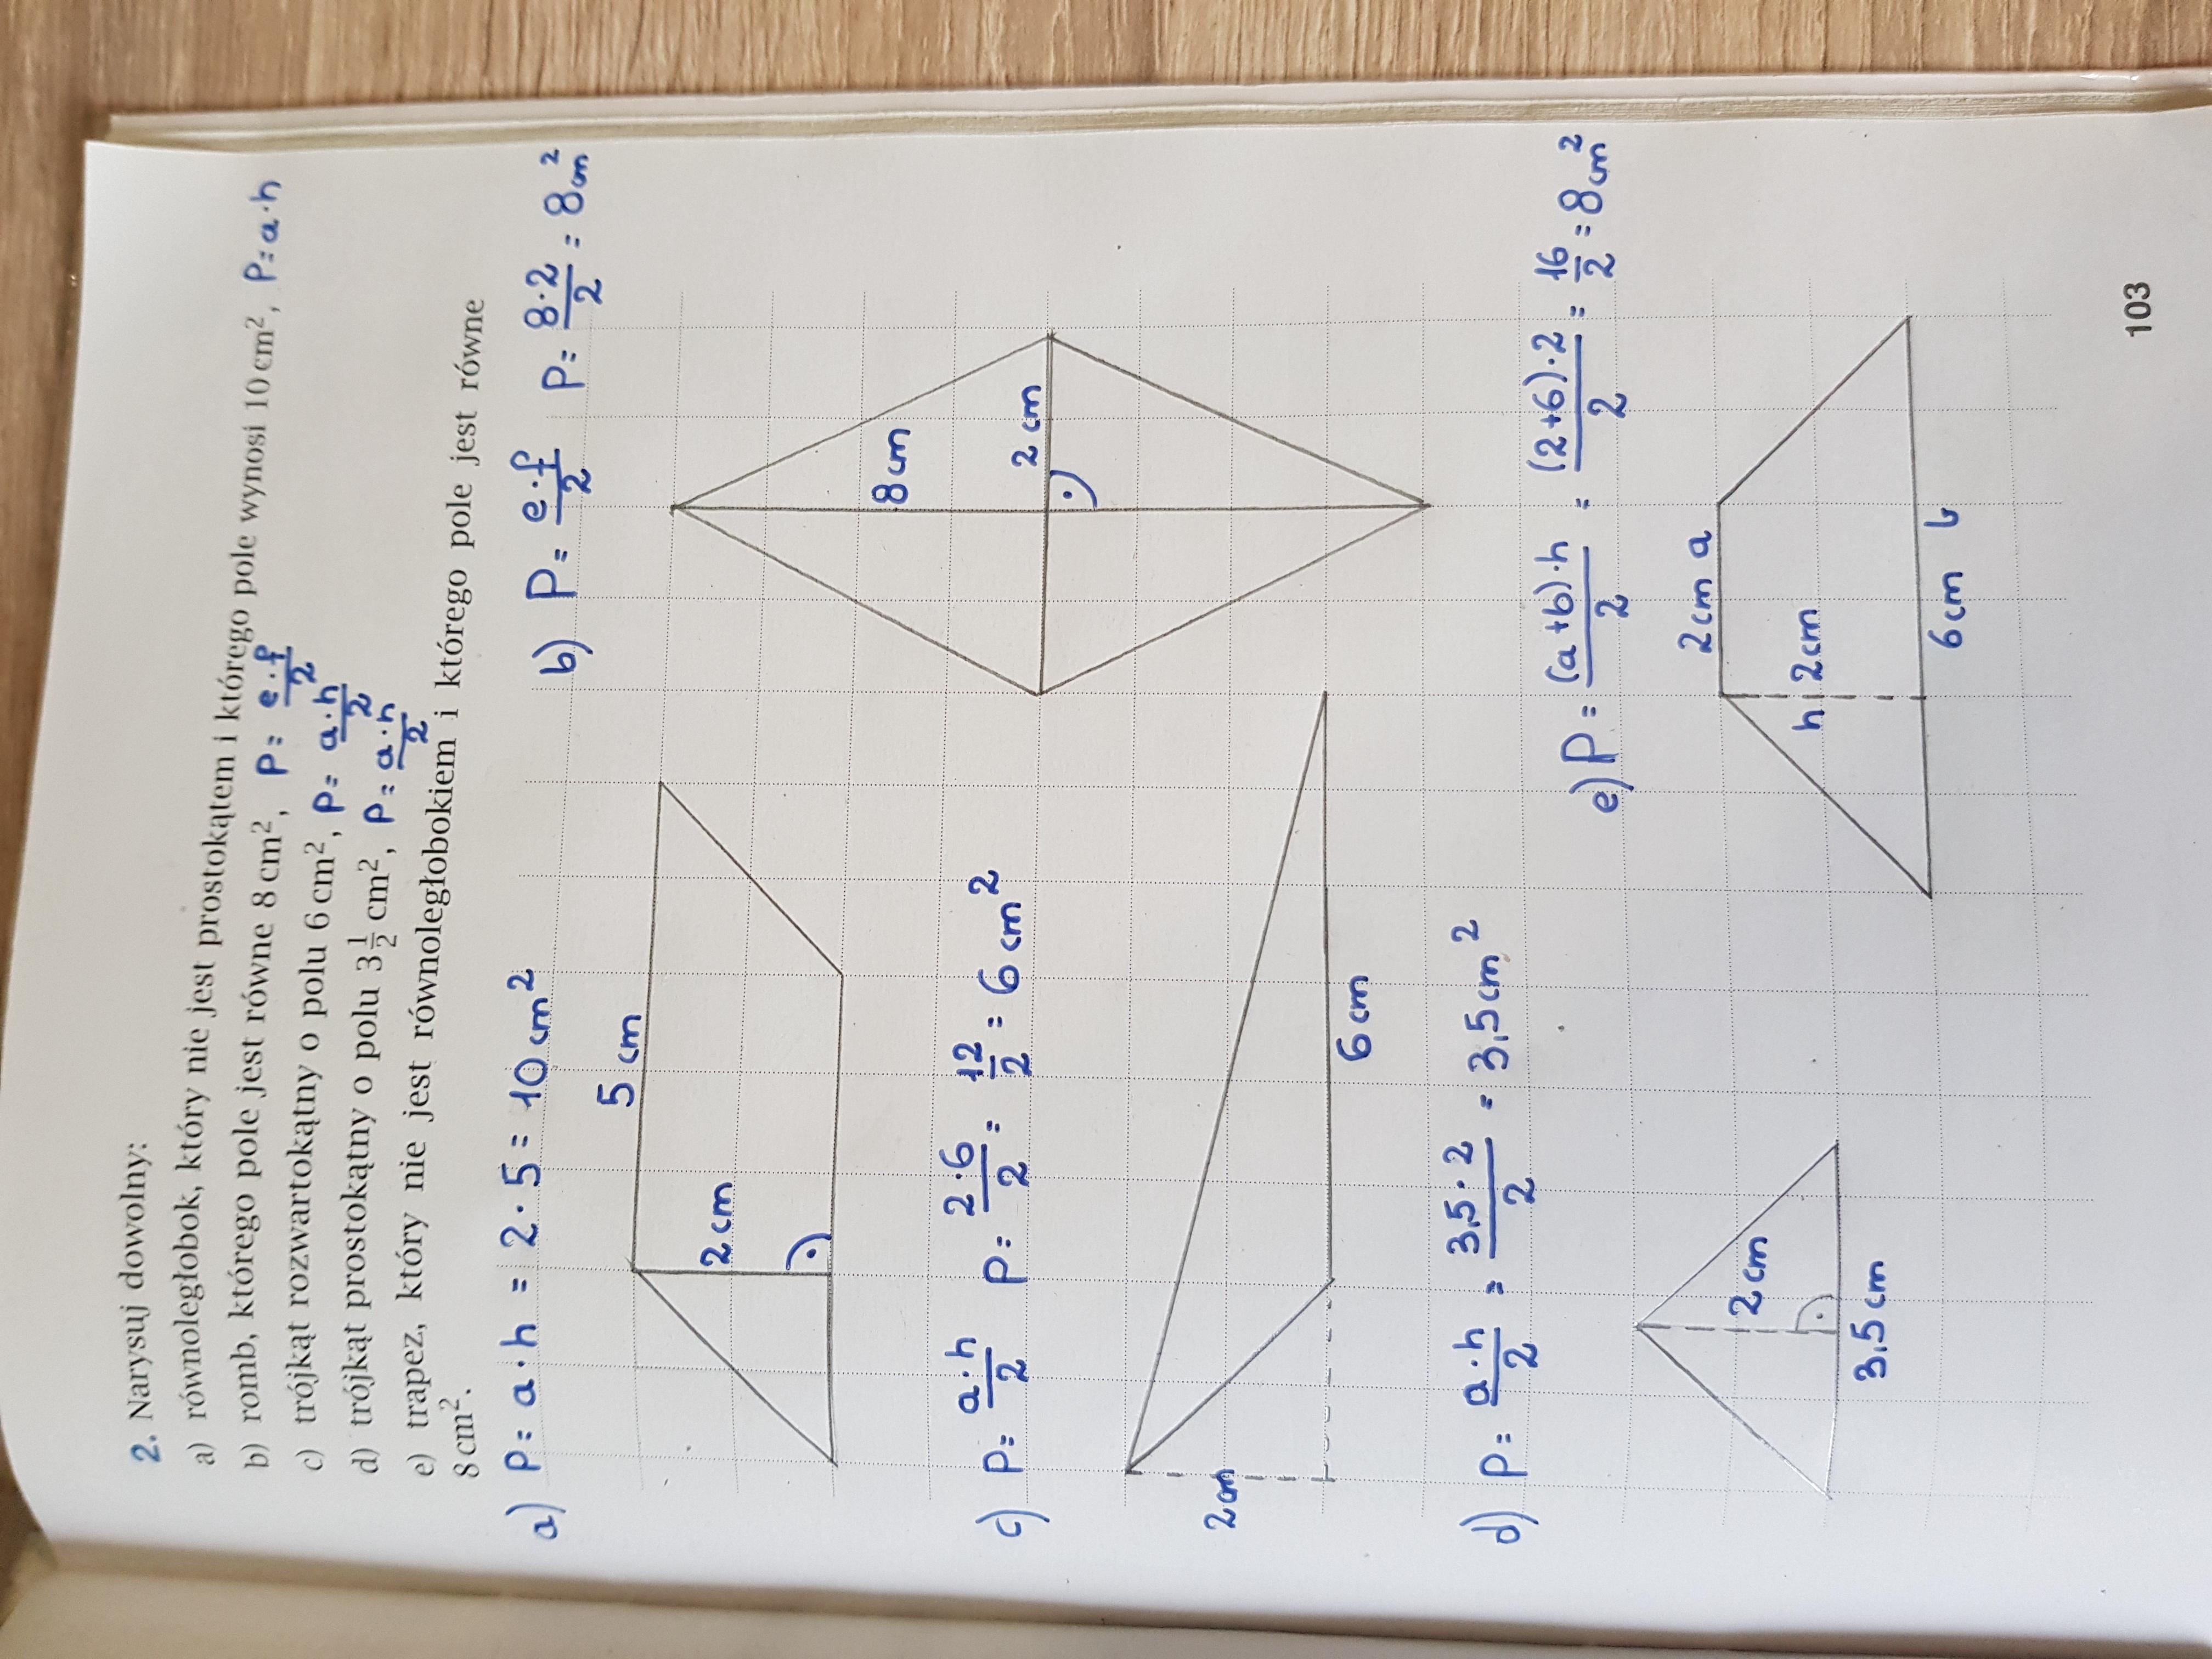 2. Narysuj dowolny:
a) równoległobok, który nie jest prostokątem i którego pole wynosi 10 cm², P = a · h
b) romb, którego pole jest równe 8 cm², P = e · f / 2
c) trójkąt rozwartokątny o polu 6 cm², P = a · h / 2
d) trójkąt prostokątny o polu 3 1/2 cm², P = a · h / 2
e) trapez, który nie jest równoległobokiem i którego pole jest równe
8 cm².
a) P = a · h = 2 · 5 = 10 cm²
5 cm
2 cm
b) P = e · f / 2 P = 8 · 2 / 2 = 8 cm²
8 cm
2 cm
c) P = a · h / 2 P = 2 · 6 / 2 = 12 / 2 = 6 cm²
2 cm
6 cm
d) P = a · h / 2 = 3.5 · 2 / 2 = 3.5 cm²
2 cm
3.5 cm
e) P = (a + b) · h / 2 = (2 + 6) · 2 / 2 = 16 / 2 = 8 cm²
2 cm a
h 2 cm
6 cm b
103